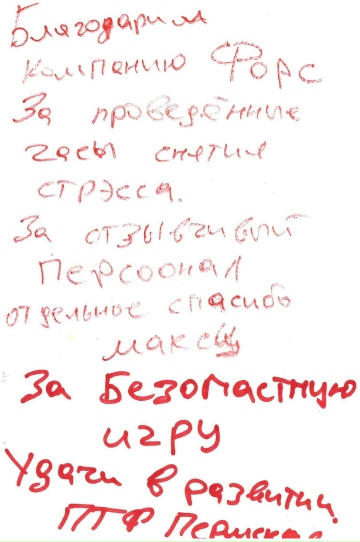 Благодарим
компанию Форс
За проведённые
часы снятия
стрэсса.
За отзывчивый
персоонал
отдельное спасибо
За Безопастную
игру
Удачи в развитии
ПТФ Пермская